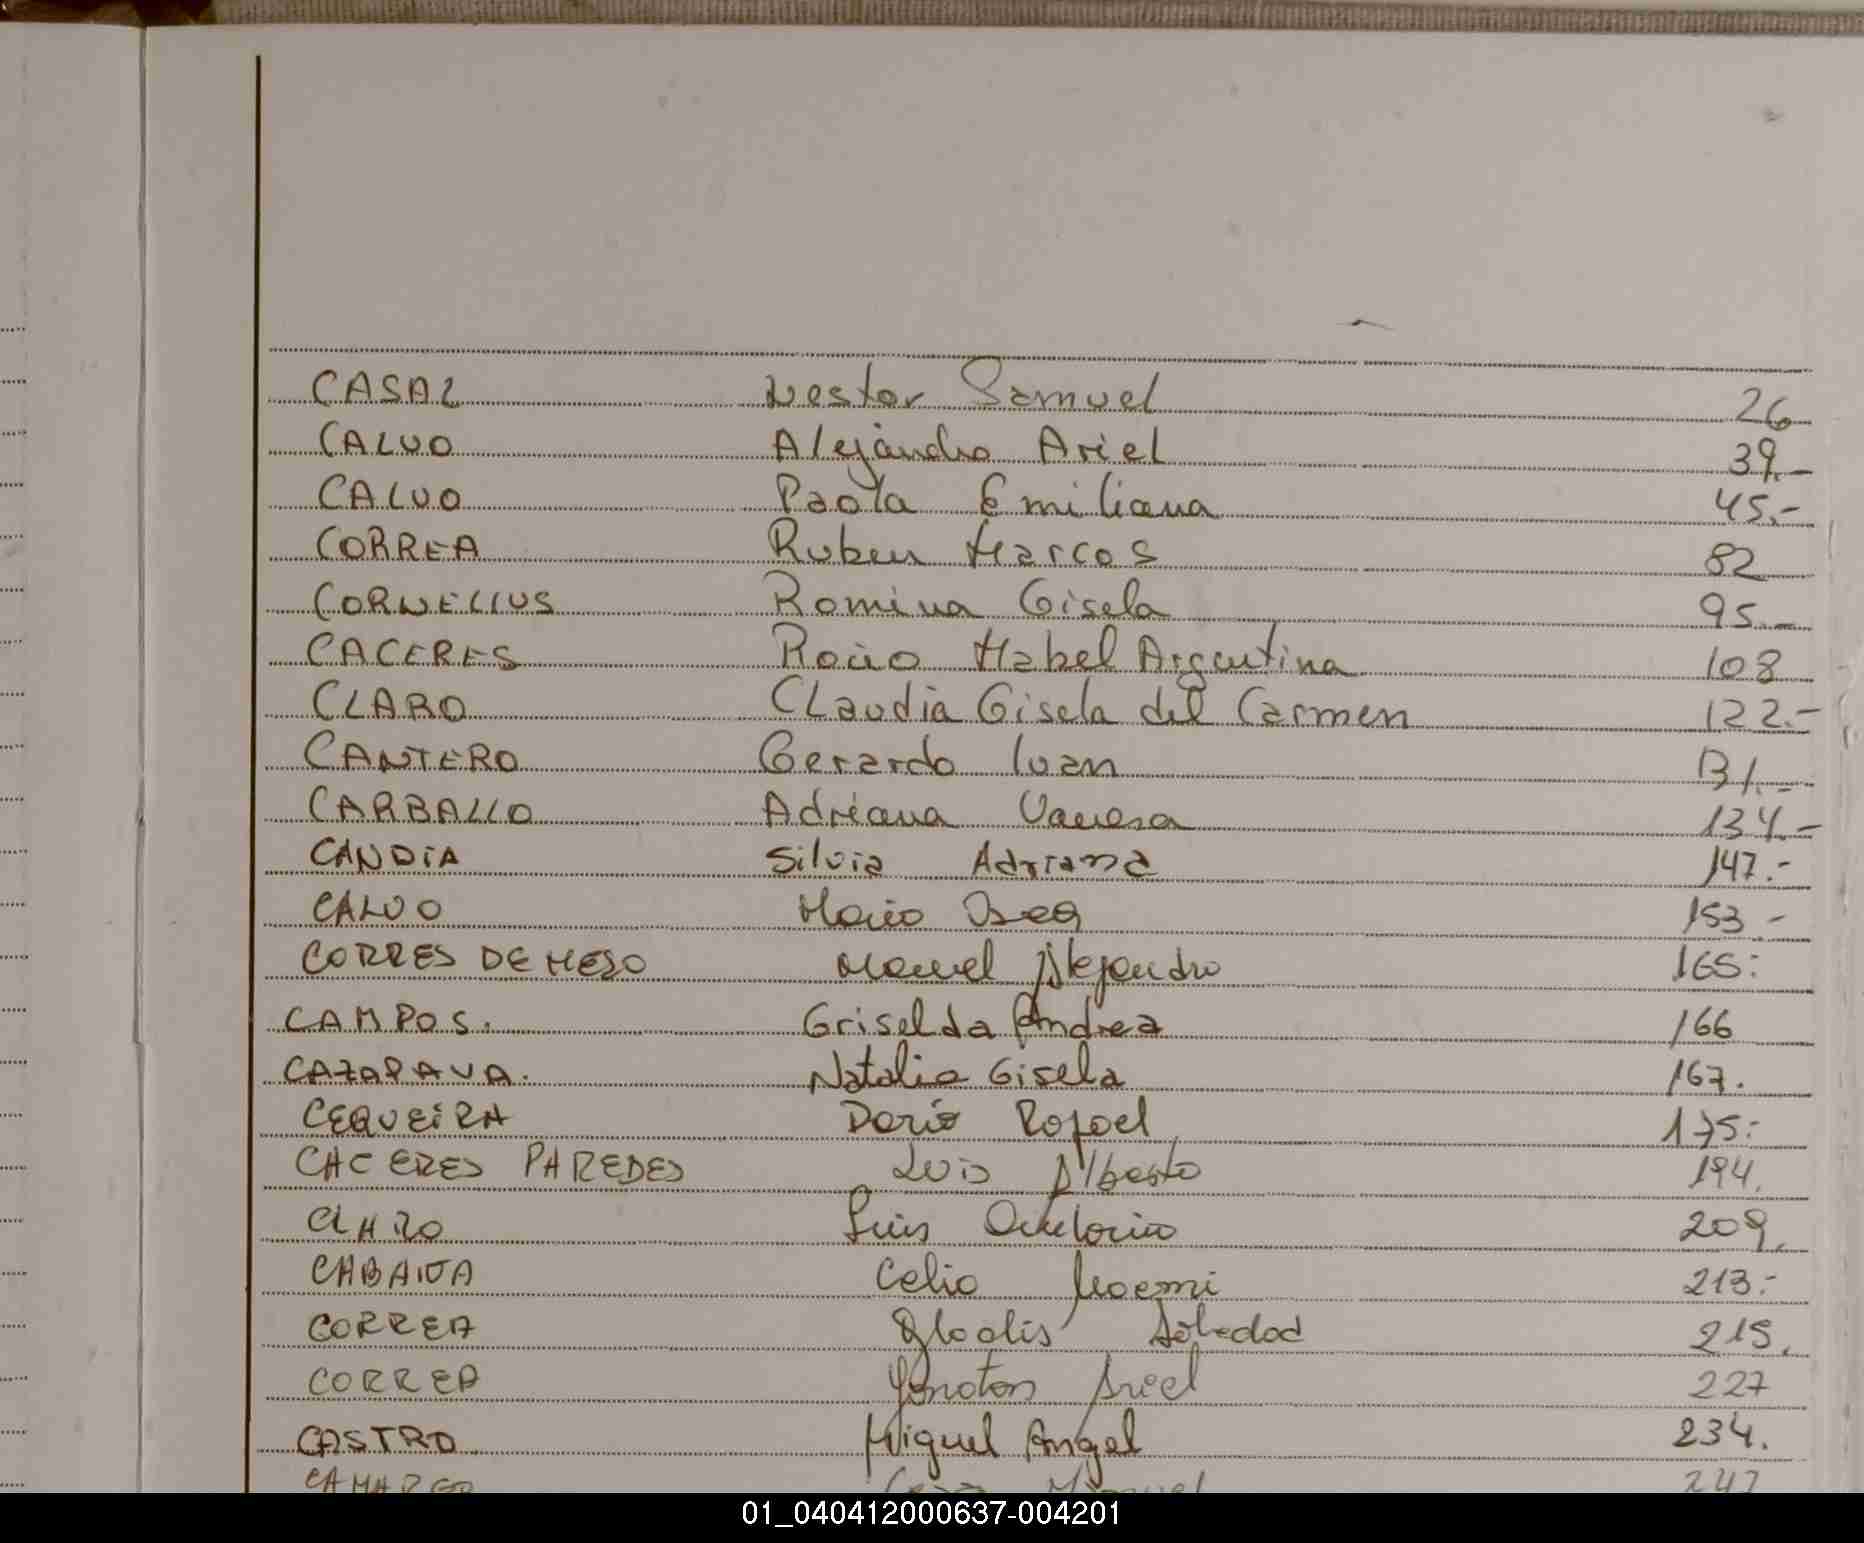 CASAL Nestor Samuel 26
CALVO Alejandro Ariel 39.-
CALVO Paola Emiliana 45.-
CORREA Ruben Marcos 82
CORNELIUS Romina Gisela 95.-
CACERES Rocio Mabel Argentina 108
CLARO Claudia Gisela del Carmen 122.-
CANTERO Gerardo Ivan 131.-
CARBALLO Adriana Vanesa 134.-
CANDIA Silvia Adriana 147.-
CALVO 153 -
CORRES DE MESO Manuel Alejandro 165:
CAMPOS. Griselda Andrea 166
CAZARAVA. Natalia Gisela 167.
CEQUEIRA Dario Rafael 175:
CACERES PAREDES Luis Alberto 194.
CLARO Luis 209.
Celia Noemi 213.-
CORREA Gladis Soledad 215.
CORREA Jonatan Ariel 227
CASTRO Miguel Angel 234.
247
01_040412000637-004201